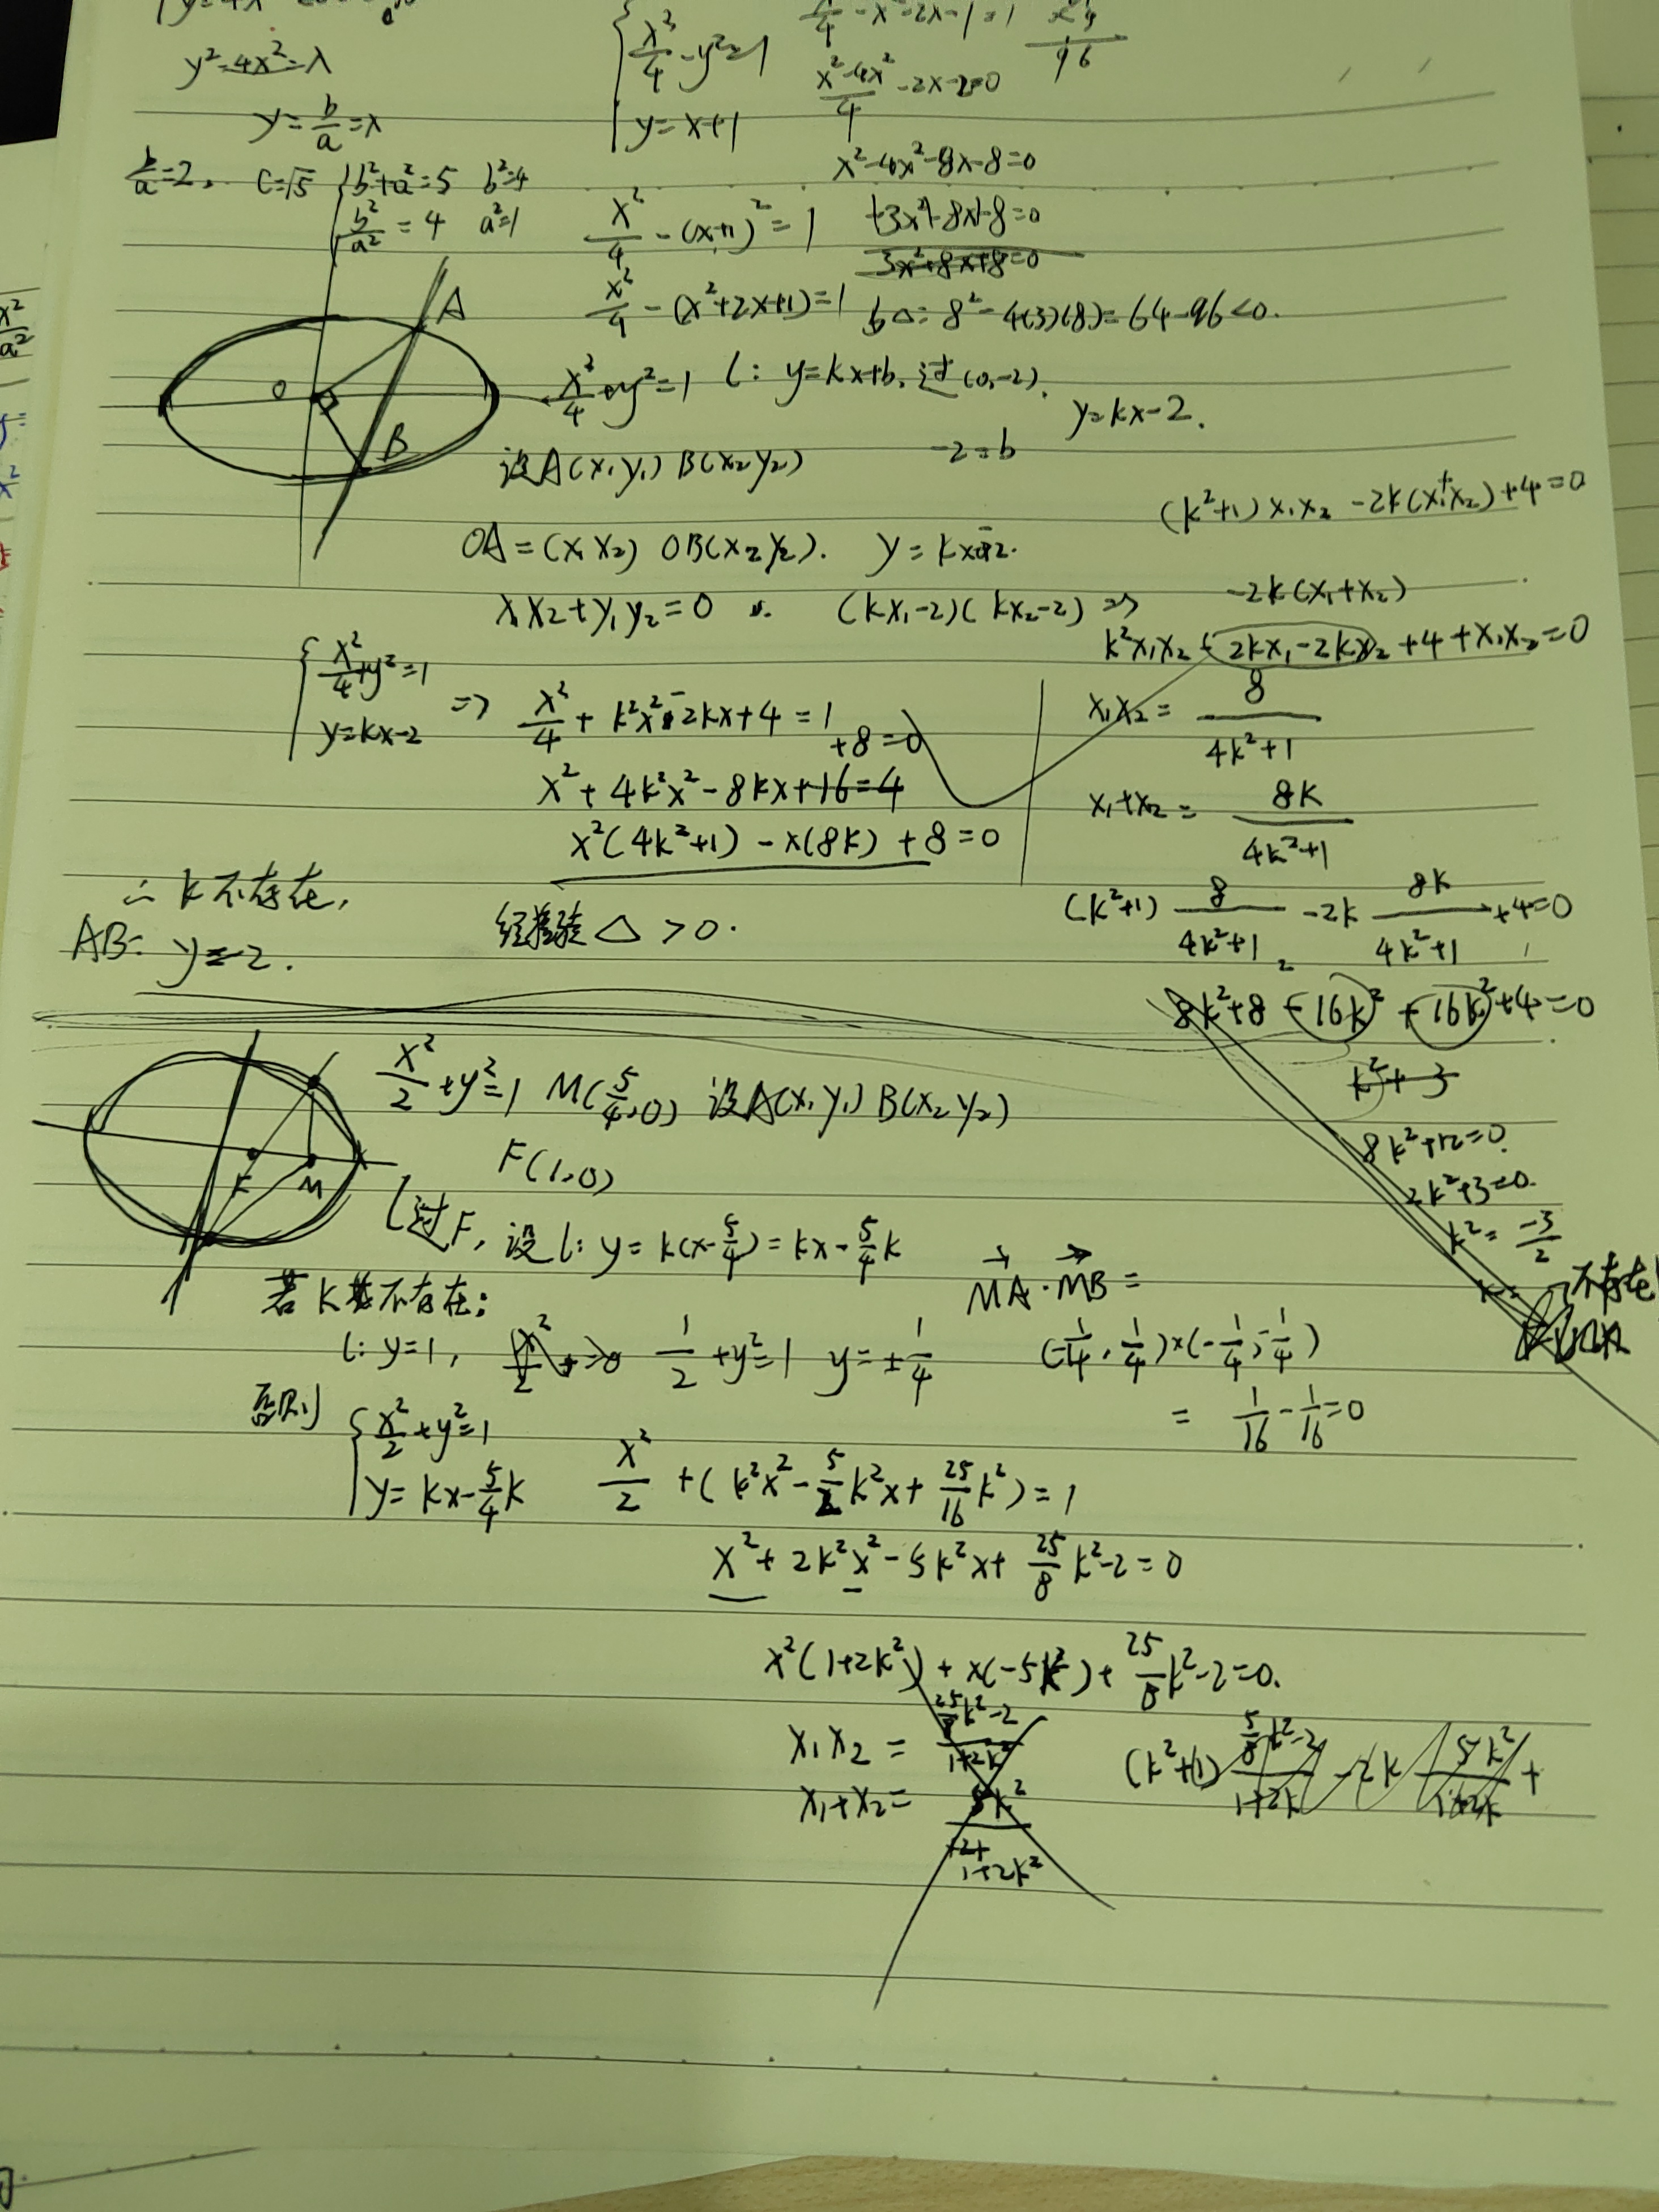 y²-4x²=λ
y=b/a=λ
b/a=2, C=√5 { b²+a²=5 b²=4
b²/a²=4 a²=1
{ x²/4-y²=1
y=x+1
x²/4-x²-2x-1=1
(x²-4x²)/4-2x-2=0
x²-4x²-8x-8=0
x²/4-(x+1)²=1
+3x²+8x+8=0
3x²+8x+8=0
x²/4-(x²+2x+1)=1
△=8²-4(3)(8)=64-96<0.
A
O
B
x²/4+y²=1 l: y=kx+b, 过(0,-2).
y=kx-2.
-2=b
设A(x₁y₁) B(x₂y₂)
OA=(x₁x₂) OB(x₂y₂). y=kx-2.
(k²+1)x₁x₂-2k(x₁+x₂)+4=0
x₁x₂+y₁y₂=0 (kx₁-2)(kx₂-2)⇒
-2k(x₁+x₂)
k²x₁x₂-2kx₁-2kx₂+4+x₁x₂=0
{ x²/4+y²=1
y=kx-2
⇒ x²/4+k²x²-2kx+4=1
+8=0
x²+4k²x²-8kx+16=4
x²(4k²+1)-x(8k)+8=0
x₁x₂=8/(4k²+1)
x₁+x₂=8k/(4k²+1)
∴k不存在,
AB: y=-2.
经检验△>0.
(k²+1) 8/(4k²+1) -2k 8k/(4k²+1) +4=0
8k²+8-16k²+16k²+4=0
k²+3
8k²+12=0.
2k²+3=0.
k²=-3/2
不存在
x²/2+y²=1 M(5/4,0) 设A(x₁y₁) B(x₂y₂)
F(1,0)
F M
l过F, 设l: y=k(x-5/4)=kx-5/4k
若k不存在:
MA·MB=
l: y=1, 1/2+y²=1 y=±1/4
(-1/4,1/4)×(-1/4,-1/4)
=1/16-1/16=0
否则 { x²/2+y²=1
y=kx-5/4k
x²/2+(k²x²-5/2k²x+25/16k²)=1
x²+2k²x²-5k²x+25/8k²-2=0
x²(1+2k²)+x(-5k²)+25/8k²-2=0.
x₁x₂=(25/8k²-2)/(1+2k²)
x₁+x₂=5k²/(1+2k²)